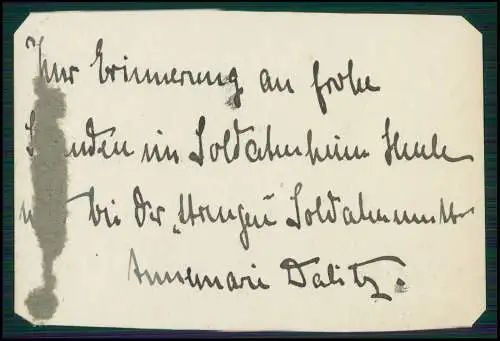 Zur Erinnerung an frohe
Stunden im Soldatenheim Heule
bei der „strengen" Soldatenmutter
Annemarie Dalitz.